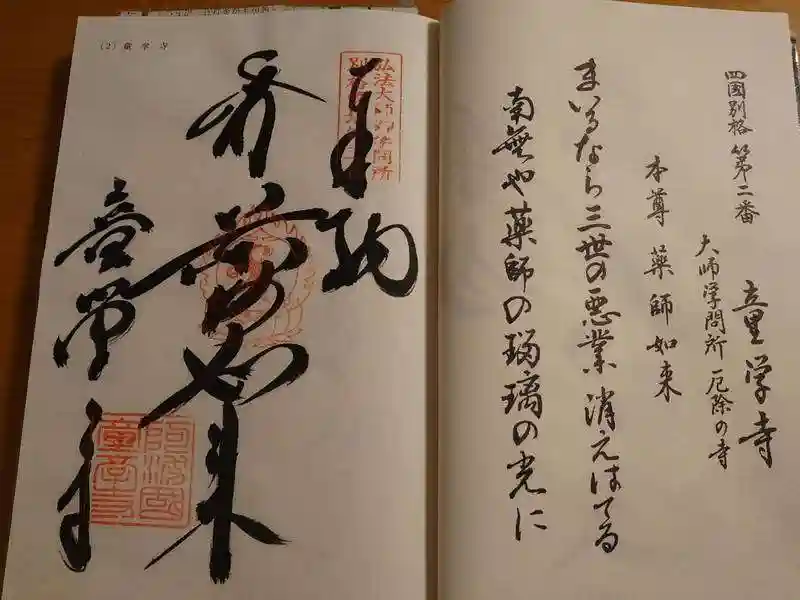 四國別格 第二番
童学寺
大師学問所 厄除の寺
本尊 薬師如来
まいるなら三世の悪業消えはてる
南無や薬師の瑠璃の光に
(2) 童学寺
奉納
童学寺
阿波國
童学寺